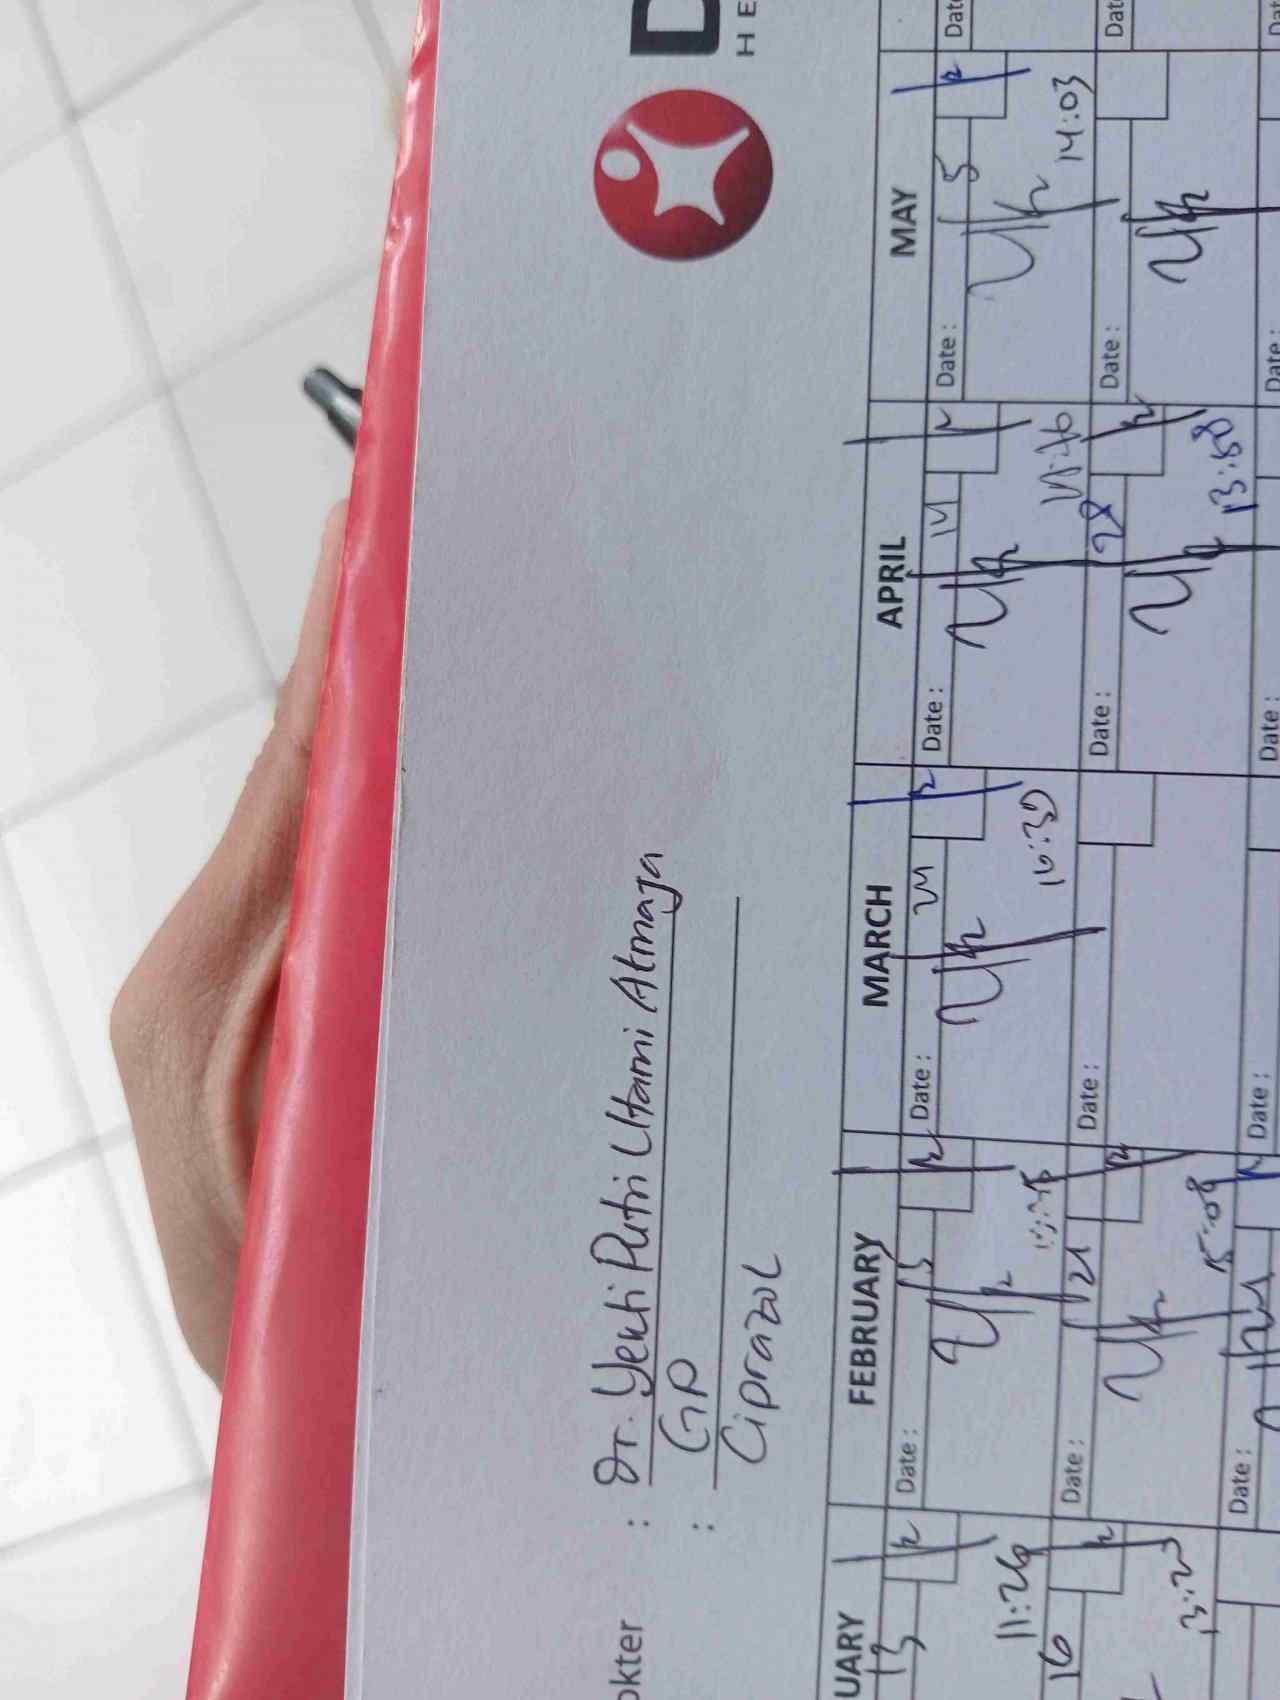 D
HE
okter : Dr. Yekti Putri Utami Atmaja
: GP
Ciprazol
UARY FEBRUARY MARCH APRIL MAY
13 Date : 13 Date : 24 Date : 14 Date : 5 Date
11:26 16:30 14:03
16 Date : 21 Date : Date : 28 Date : Dat
13:23 15:08 13:58
Date : Date : Date : Date : Dat